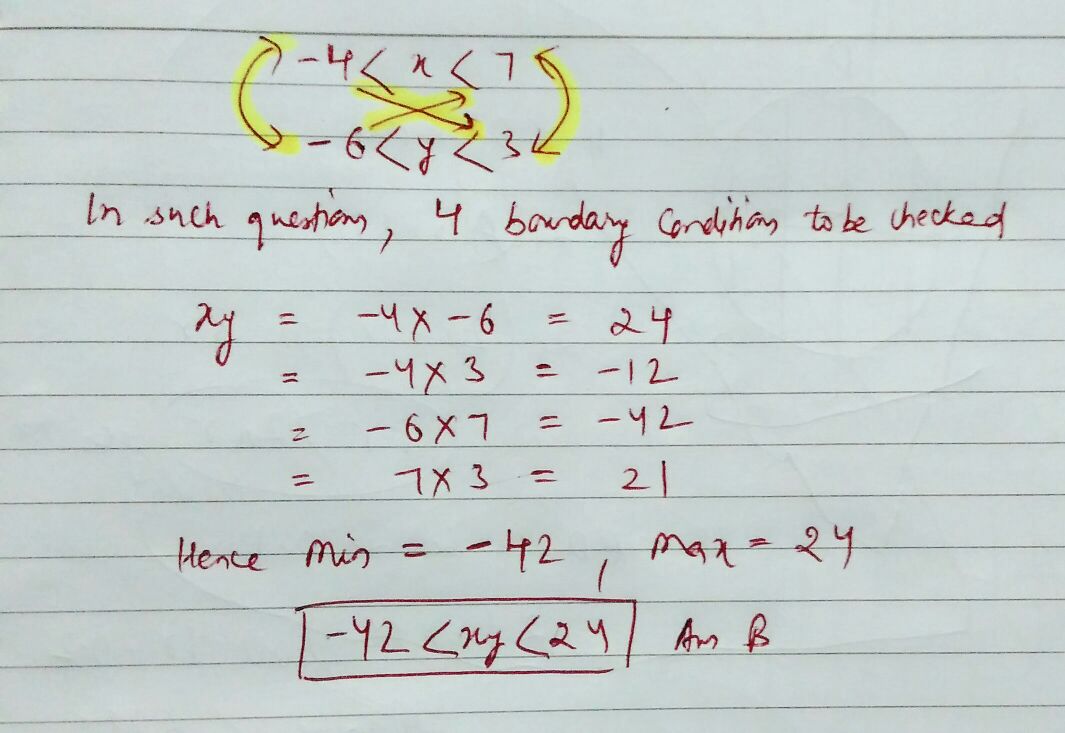 -4 < x < 7
-6 < y < 3
In such questions, 4 boundary conditions to be checked
xy = -4 x -6 = 24
= -4 x 3 = -12
= -6 x 7 = -42
= 7 x 3 = 21
Hence min = -42, max = 24
-42 < xy < 24 Ans B